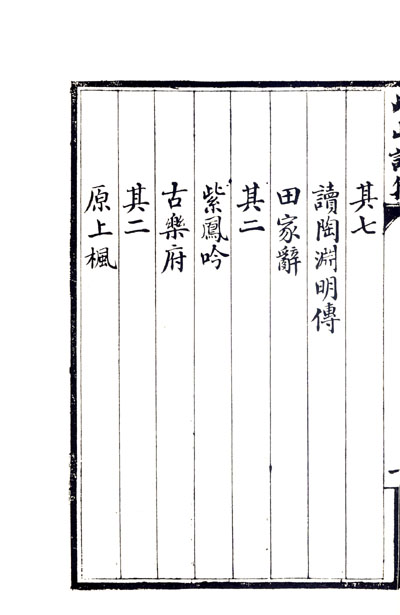 其七
讀陶淵明傳
田家辭
其二
紫鳳吟
古樂府
其二
原上楓